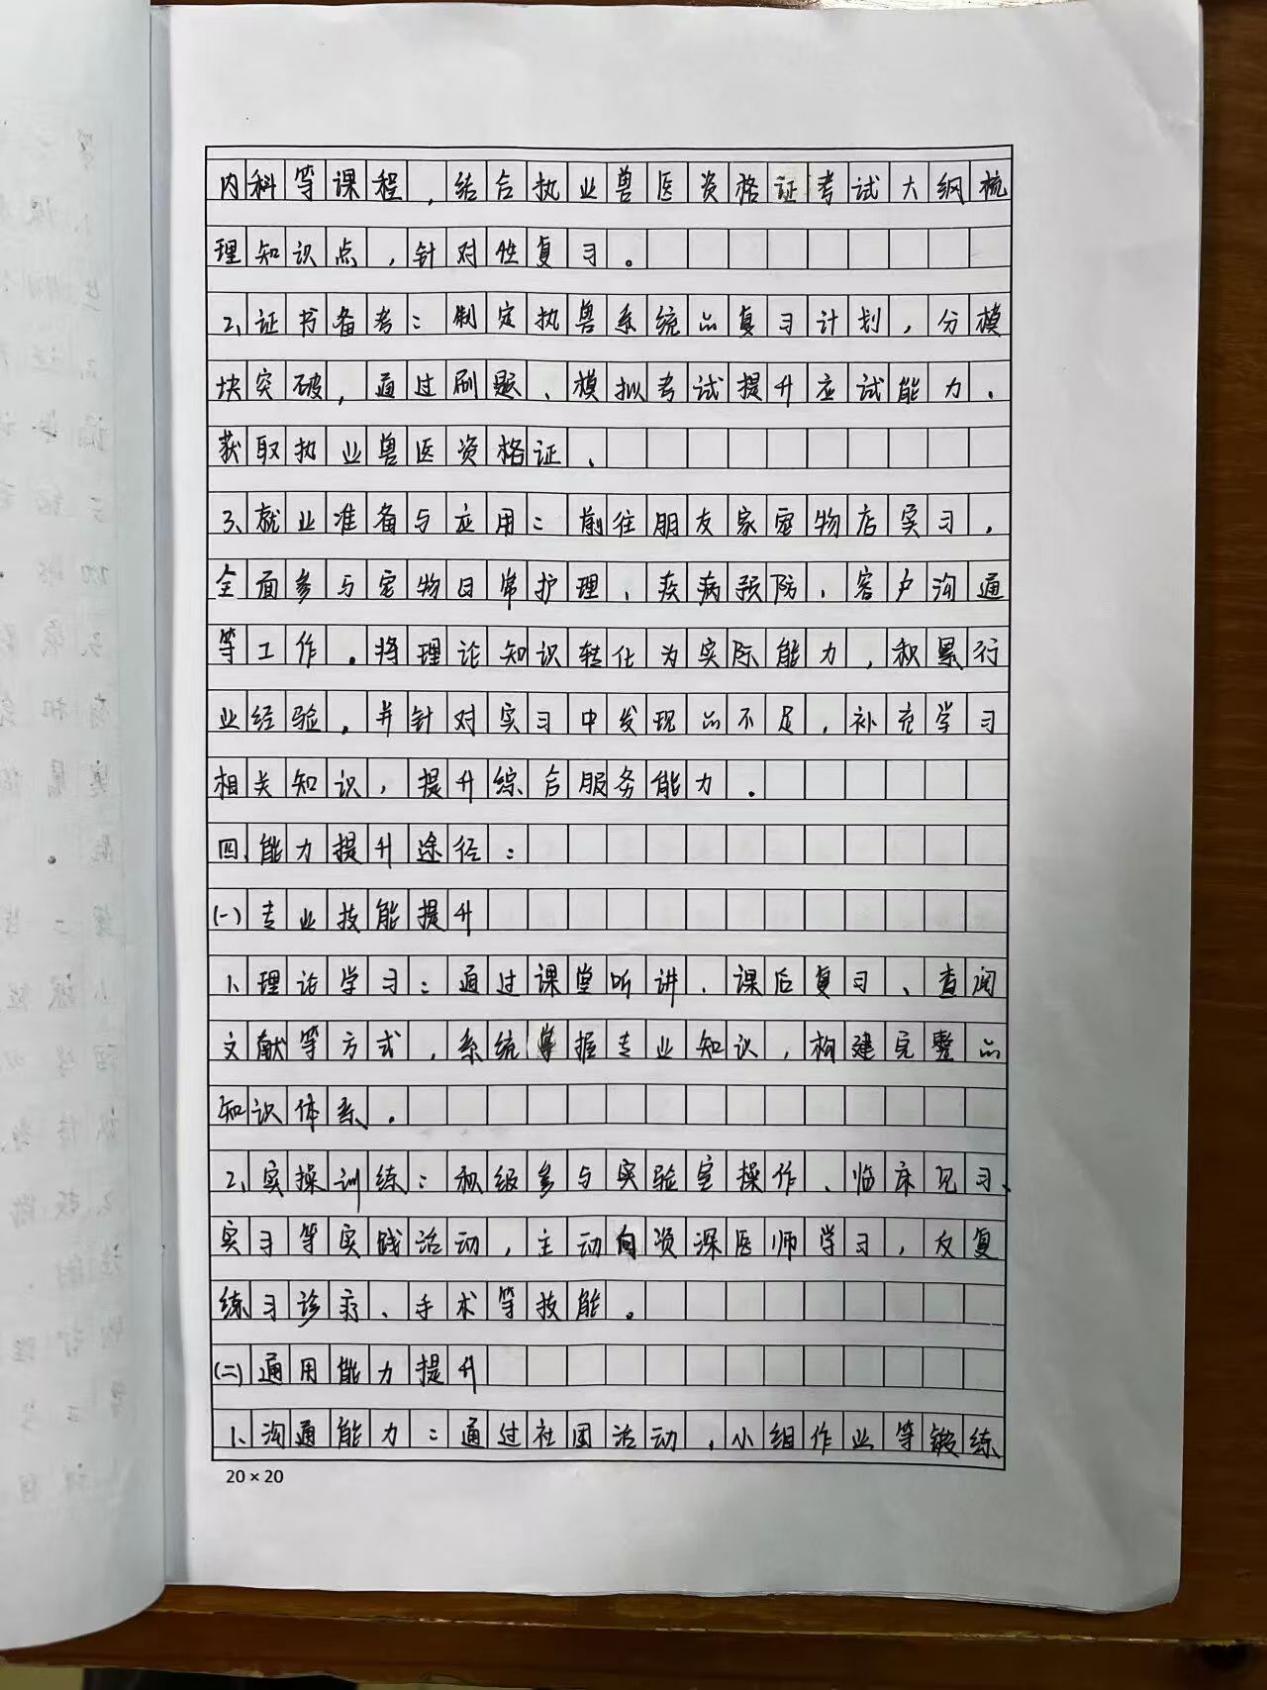 内科等课程,结合执业兽医资格证考试大纲梳
理知识点,针对性复习。
2、证书备考:制定执兽系统的复习计划,分模
块突破,通过刷题、模拟考试提升应试能力、
获取执业兽医资格证、
3、就业准备与应用:前往朋友家宠物店实习,
全面参与宠物日常护理、疾病预防,客户沟通
等工作。将理论知识转化为实际能力,积累行
业经验,并针对实习中发现的不足,补充学习
相关知识,提升综合服务能力。
四、能力提升途径:
(一)专业技能提升
1、理论学习:通过课堂听讲、课后复习、查阅
文献等方式,系统掌握专业知识,构建完整的
知识体系。
2、实操训练:积级参与实验室操作、临床见习、
实习等实践活动,主动向资深医师学习,反复
练习诊疗、手术等技能。
(二)通用能力提升
1、沟通能力:通过社团活动,小组作业等锻练
20×20